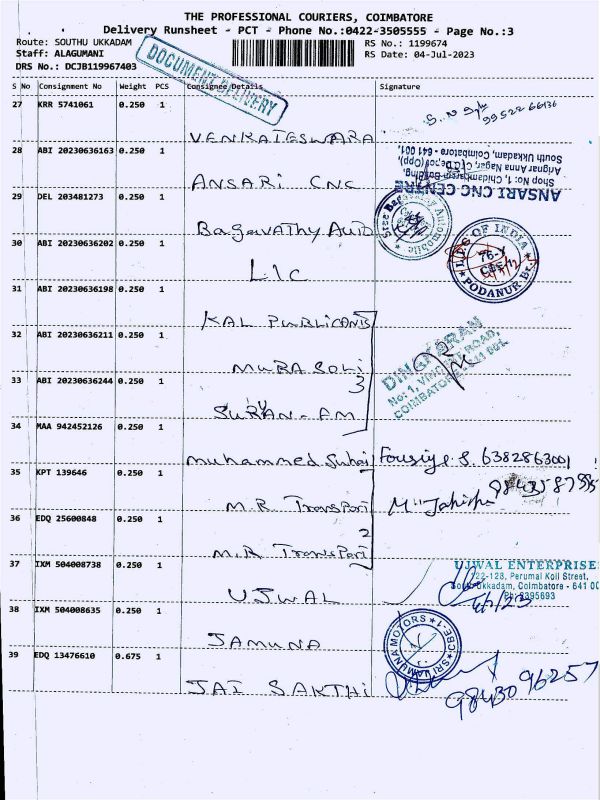 THE PROFESSIONAL COURIERS, COIMBATORE
Delivery Runsheet - PCT - Phone No.:0422-3505555 - Page No.:3
Route: SOUTHU UKKADAM
RS No.: 1199674
Staff: ALAGUMANI
RS Date: 04-Jul-2023
DRS No.: DCJB119967403
DOCUMENT DELIVERY
S No Consignment No Weight PCS Consignee Details Signature
27 KRR 5741061 0.250 1
99522 66136
VENKATESWARA
28 ABI 20230636163 0.250 1
ANSARI CNC
ANSARI CNC CENTRE
Shop No: 1, Chidambaram Building,
Arignar Anna Nagar, (Opp),
South Ukkadam, Coimbatore - 641 001.
29 DEL 203481273 0.250 1
Bagavathy Auto
Sree Bagavathy Automobile
30 ABI 20230636202 0.250 1
LIC
L.I.C. OF INDIA
76-Y
CBE
PODANUR Br.
31 ABI 20230636198 0.250 1
KAL PUBLICANTS
32 ABI 20230636211 0.250 1
MURASOLI
3
DINAKARAN
COIMBATORE
33 ABI 20230636244 0.250 1
SURYAN-FM
34 MAA 942452126 0.250 1
muhammed Suhai
Fousiya. S. 6382863001
35 KPT 139646 0.250 1
M.R Transport
36 EDQ 25600848 0.250 1
2
M.R Transport
37 IXM 504008738 0.250 1
UJWAL
UJWAL ENTERPRISE
122-123, Perumal Koil Street,
South Ukkadam, Coimbatore - 641 00
Ph: 2395693
38 IXM 504008635 0.250 1
JAMUNA
SRI JAMUNA MOTORS
CBE-1
39 EDQ 13476610 0.675 1
JAI SAKTHI
98430 96257